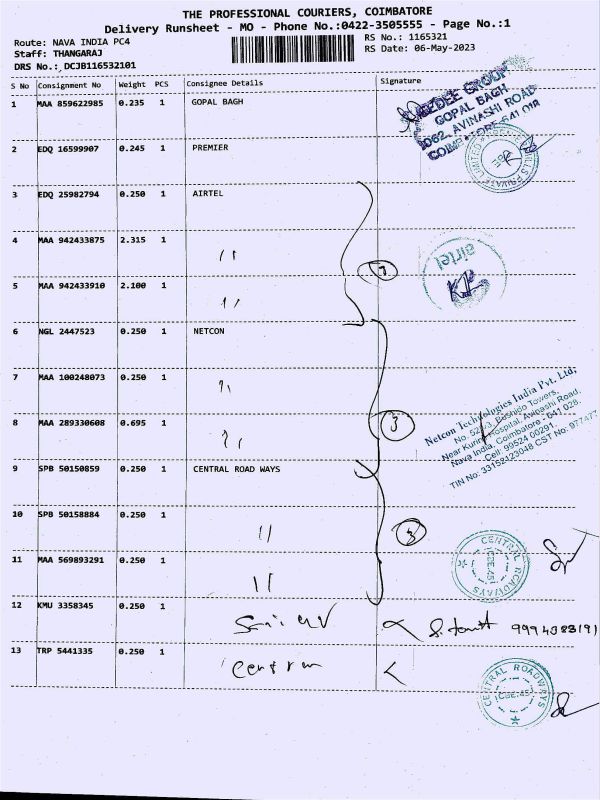 THE PROFESSIONAL COURIERS, COIMBATORE
Delivery Runsheet - MO - Phone No.:0422-3505555 - Page No.:1
Route: NAVA INDIA PC4
Staff: THANGARAJ
DRS No.: DCJB116532101
RS No.: 1165321
RS Date: 06-May-2023
S No Consignment No Weight PCS Consignee Details Signature
1 MAA 859622985 0.235 1 GOPAL BAGH
GEDEE GROUP
GOPAL BAGH
1062, AVINASHI ROAD
COIMBATORE 641 018
2 EDQ 16599907 0.245 1 PREMIER
MILLS PRIVATE LIMITED
CBE
3 EDQ 25982794 0.250 1 AIRTEL
4 MAA 942433875 2.315 1 ''
airtel
5 MAA 942433910 2.100 1 ''
6 NGL 2447523 0.250 1 NETCON
7 MAA 100248073 0.250 1 ''
8 MAA 289330608 0.695 1 '' 3
Netcon Technologies India Pvt. Ltd;
Towers,
Near Hospital, Avinashi Road,
Nava India, Coimbatore - 641 028.
Cell: 99524 00291
TIN No: 33152123048 CST No: 977477
9 SPB 50150859 0.250 1 CENTRAL ROAD WAYS
10 SPB 50158884 0.250 1 '' 3
11 MAA 569893291 0.250 1 ''
CENTRAL ROADWAYS
CBE.45
12 KMU 3358345 0.250 1
13 TRP 5441335 0.250 1
CENTRAL ROADWAYS
CBE.45